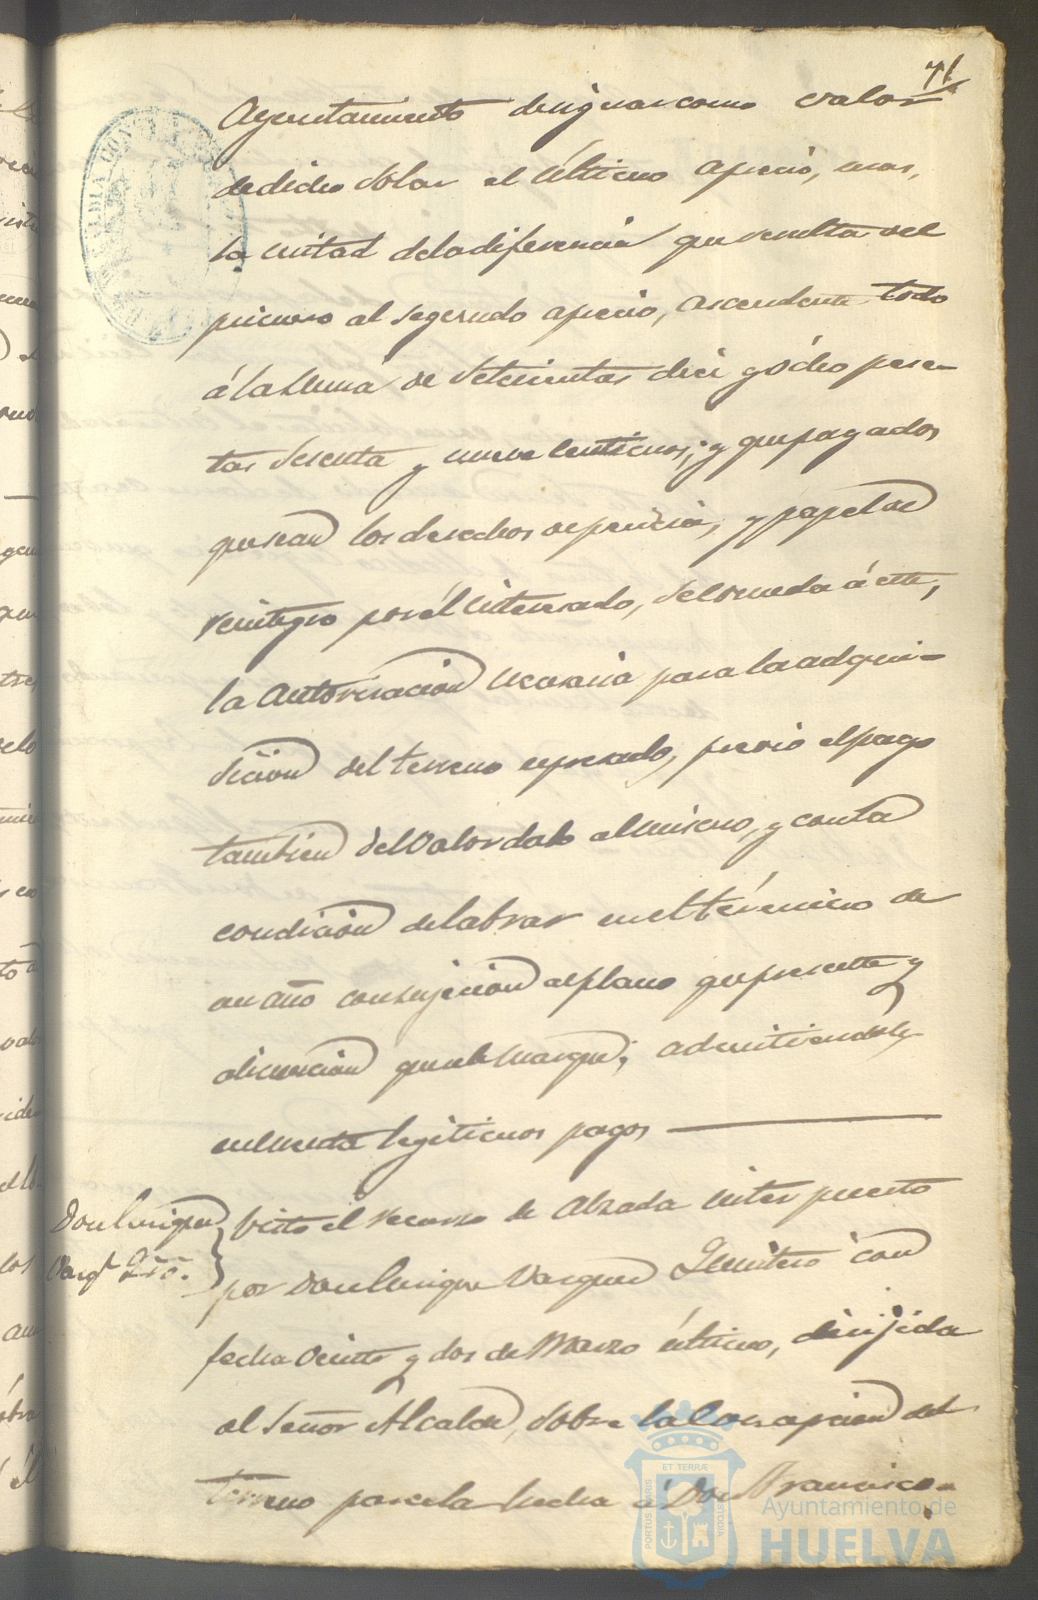 71
Ayuntamiento designar como valor
de dicho Solar el último aprecio, mas,
la mitad de la diferencia que resulta del
primero al segundo aprecio, ascendente todo
á la suma de Setecientas diez y ocho pese-
tas sesenta y nueve centimos; y que pagados
que sean los derechos de pericia, y papel de
reintegro por el interesado, se conceda á este,
la autorisacion necesaria para la adqui-
sicion del terreno espresado, previo el pago
tambien del valor dado al mismo, y con la
condicion de labrar en el término de
un año con sujecion al plano que presente y
alineacion que se le marque; admitiendosele
en venta legitimos pagos
Don Enrique
Vazqz Qro.
Visto el recurso de Alzada interpuesto
por Don Enrique Vazquez Quintero con
fecha veinte y dos de Marzo último, dirijida
al Señor Alcalde, sobre la concesion del
terreno parcela hecha á Don Francisco
ET TERRÆ
PORTUS MARIS
CUSTODIA
Ayuntamiento de
HUELVA